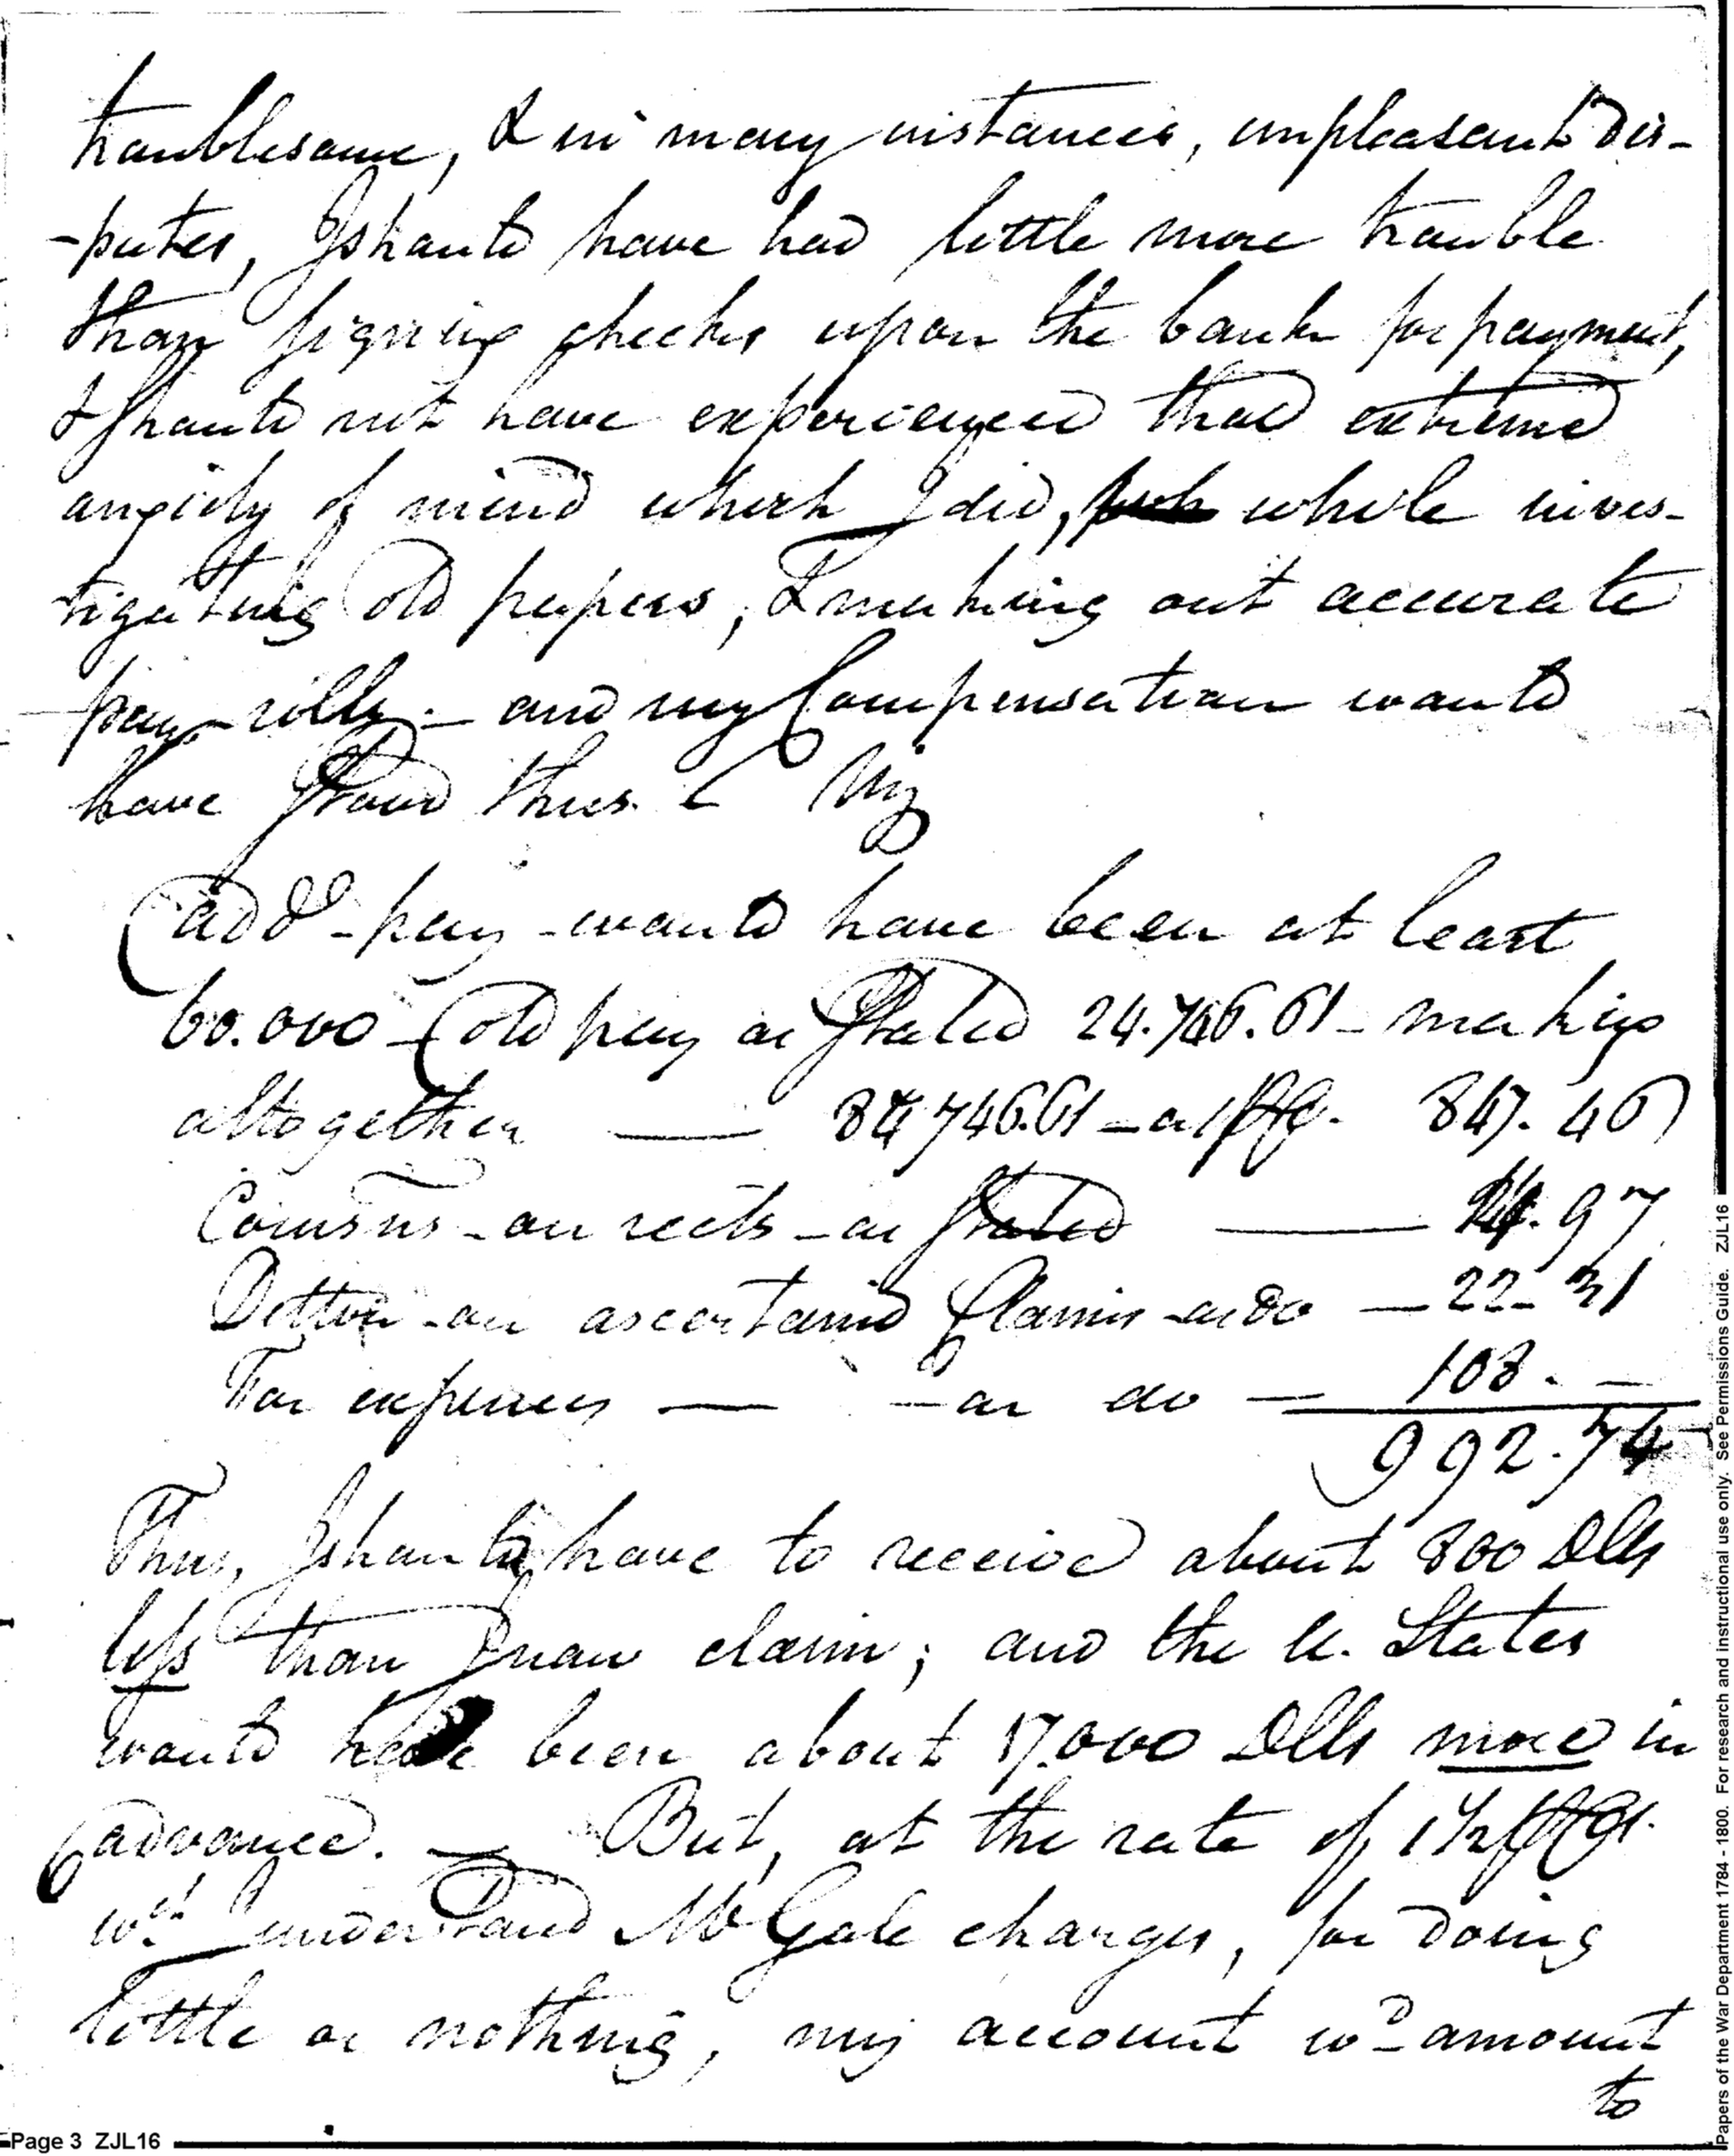 troublesome, & in many instances, unpleasant dis-
-putes, I should have had little more trouble
than signing checks upon the bank for payment,
& should not have experienced that extreme
anxiety of mind which I did, while inves-
tigating old papers, & making out accurate
pay-rolls. — and my Compensation would
have stood thus. Viz
add.l - pay - would have been at least
60.000 — old pay as stated 24.746.61 — making
altogether — 84,746.61 — a 1 pCt. 847.46
Comsns - on rects - as stated — 14.97
Dittoe - on ascertained Claims - as do — 22 - 31
For expences — — as do — 108. —
992.74
Thus, I should have to receive about 800 Dlls
less than I now claim; and the U. States
would have been about 17.000 Dlls more in
advance. — But, at the rate of 1 1/2 pCt.
wch. I understand Mr Gale charges, for doing
little or nothing, my account wd amount
to
Page 3 ZJL16
Papers of the War Department 1784 - 1800. For research and instructional use only. See Permissions Guide. ZJL16